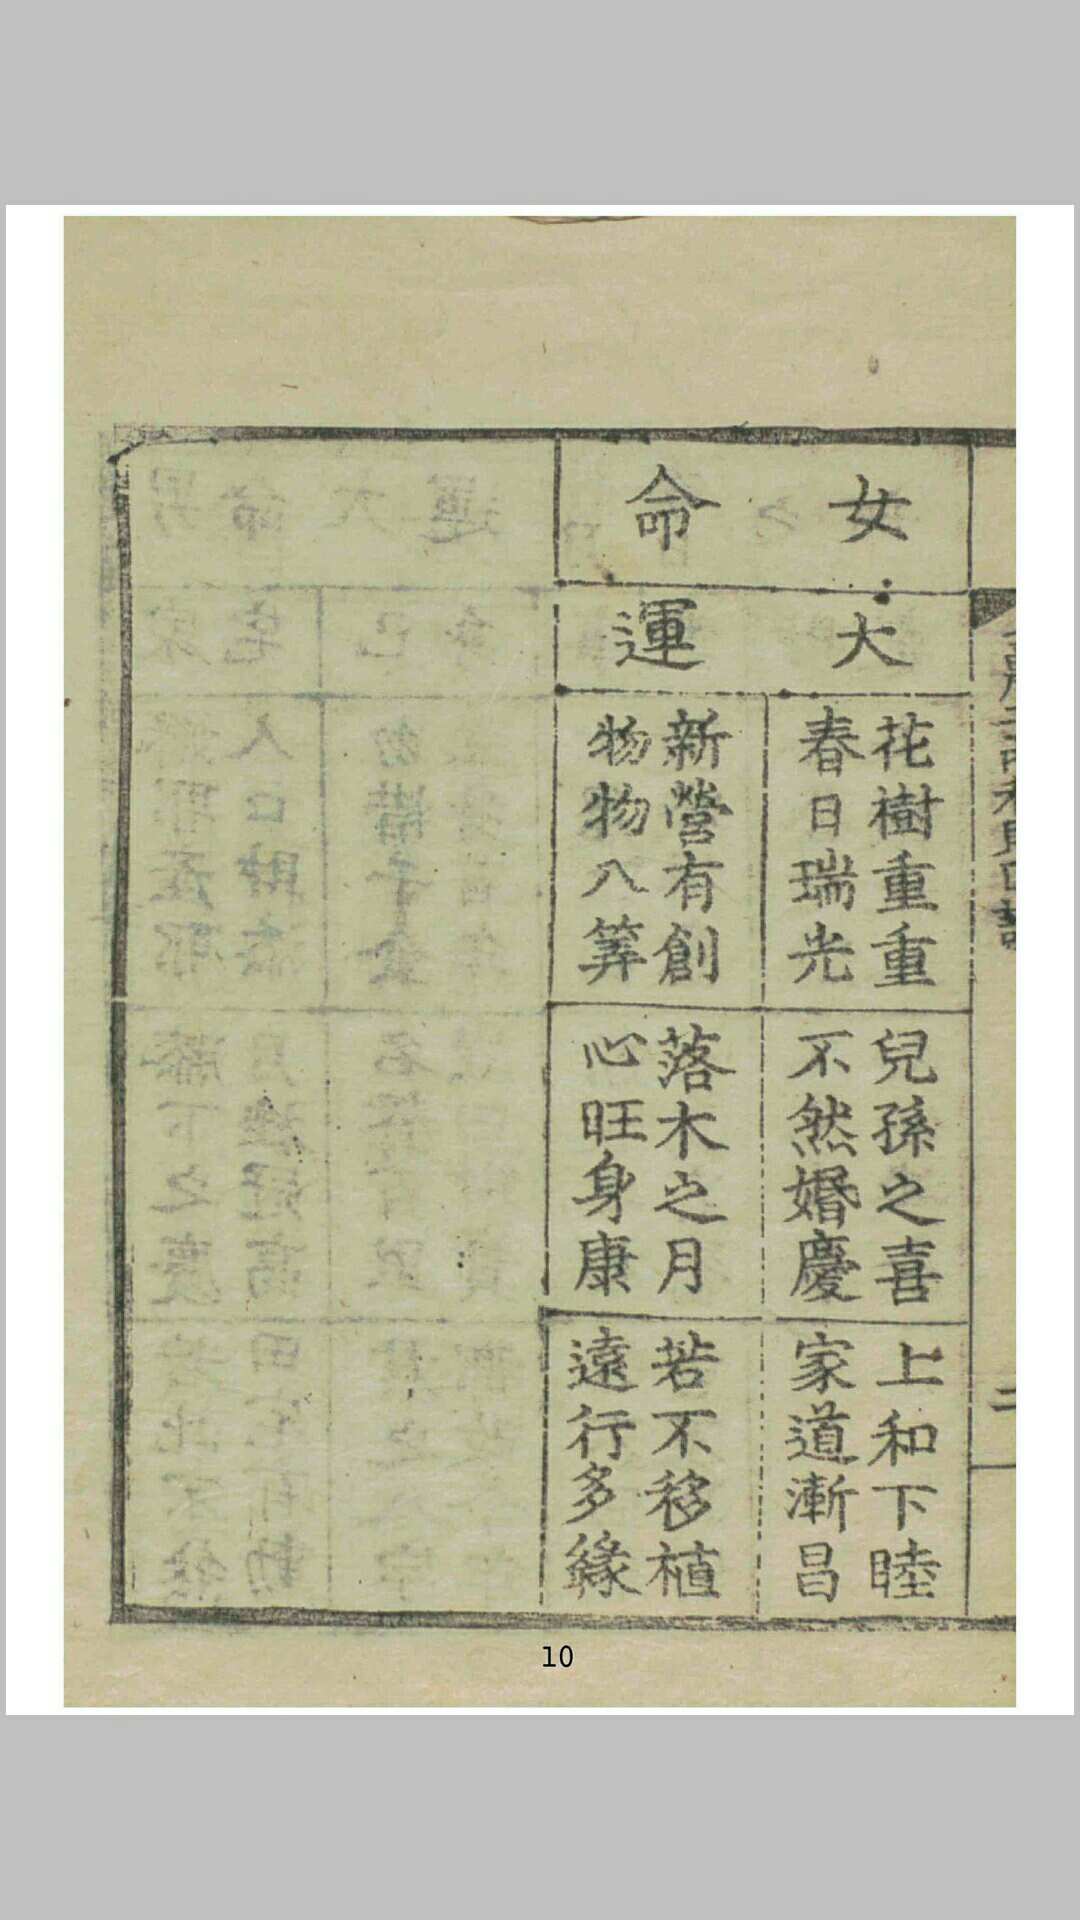 女命
大運
花樹重重
春日瑞光
兒孫之喜
不然婚慶
上和下睦
家道漸昌
新營有創
物物八筭
落木之月
心旺身康
若不移植
遠行多緣
二
10